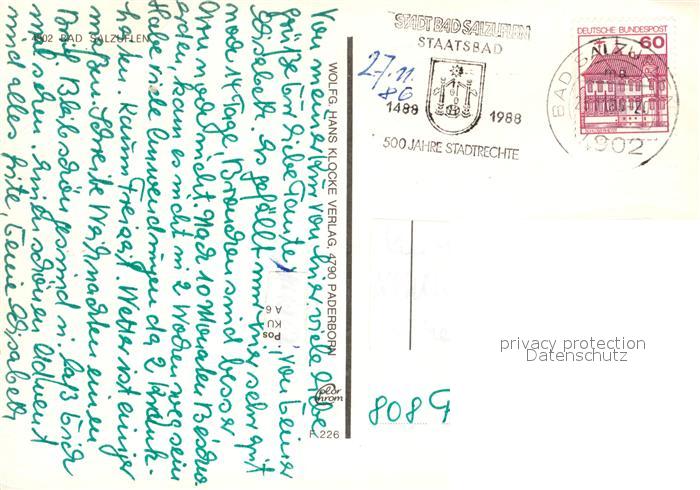 4902 BAD SALZUFLEN
Von meiner Kur von hier viele liebe
Grüße Dir liebe Tante, von Deiner
Elisabeth. Es gefällt mir hier sehr gut
noch 14 Tage. Bronchien sind besser
nicht Nach 10 Monaten Beschw
erden, kann es nicht in 2 Wochen weg sein
Habe viele Anwendungen da 2 Krank-
heiten. Kaum Freizeit. Wetter ist einiger
maßen. Schreibe Weihnachten einen
Brief. Bleib schön gesund u. laß Dich
mal sehen. schönen Advent
und alles Gute, Deine Elisabeth
WOLFG. HANS KLOCKE VERLAG, 4790 PADERBORN
Pos
KU
A 6
F 226
STADT BAD SALZUFLEN
STAATSBAD
1488 1988
500 JAHRE STADTRECHTE
27.11.
86
DEUTSCHE BUNDESPOST
60
BAD SALZUFLEN
ma
4902
privacy protection
Datenschutz
808 G